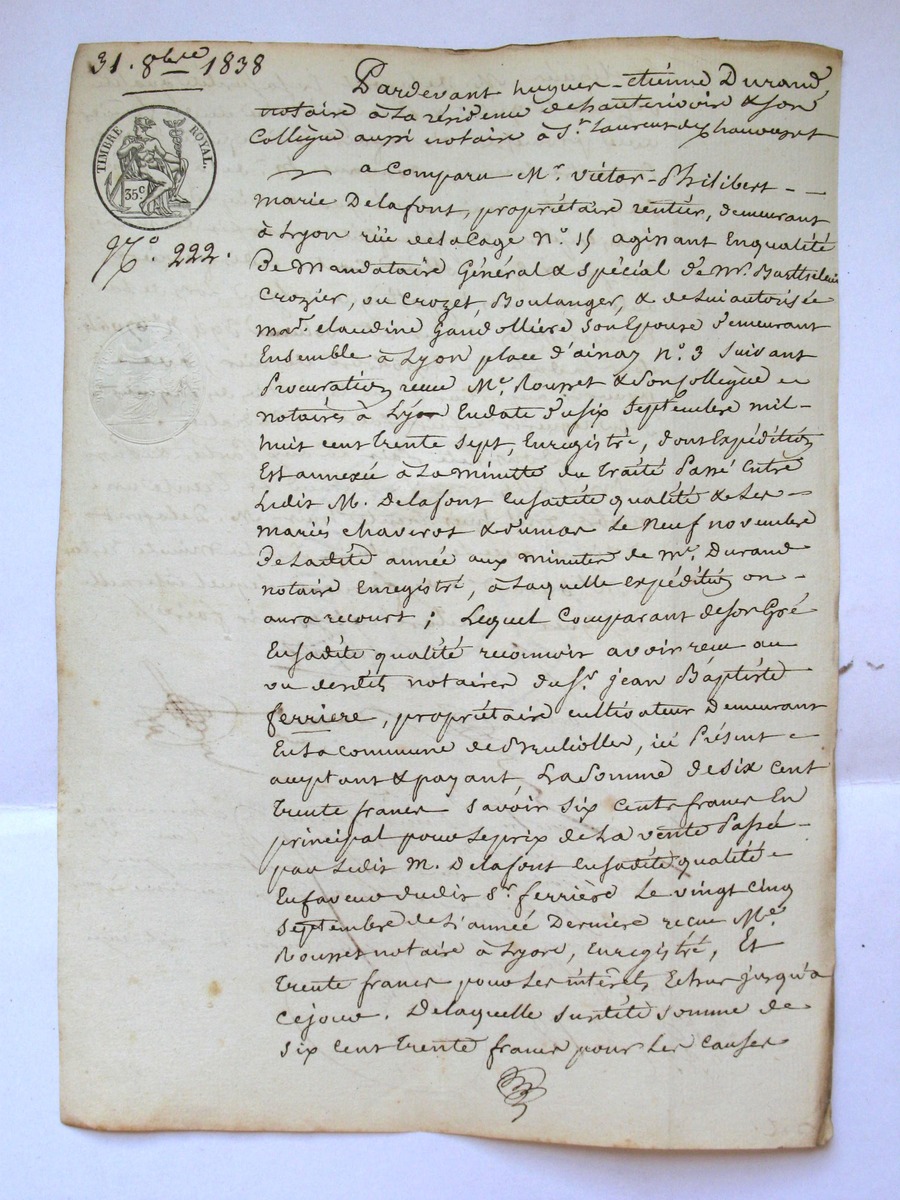 31. 8bre 1838
TIMBRE ROYAL.
35c
No. 222.
Pardevant hugues-etiénne Durand
notaire à La résidence dehauterivoire & son
Collègue aussi notaire à St. Laurent de chamousset
a Comparu Mr. Viétor-Philibert-
marie Delafont, propriétaire rentier, demeurant
à Lyon rüe de la Cage No. 15 agissant Enqualité
De Mandataire Général & spécial de Mr. Barthelemi
Crozier, ou Crozet, Boulanger, & de lui autorisée
mar. claudine Gandollière son Epouse Demeurant
Ensemble à Lyon place d'ainay No. 3 suivant
Procuration recue Me. Rousset & son Collègue
notaires à Lyon Endate du six Septembre mil-
huit cent trente sept, Enregistré, dont Expédition
Est annexée à La minutte du Traité Passé Entre
Ledit M. Delafont Ensadite qualité & Les
mariés chaverot & dumas Le Neuf novembre
De Ladite année aux minutes de Me. Durand
notaire Enregistré, à Laquelle expédition on
aura recourt; Lequel Comparant de son Gré
Ensadite qualité reconnoit avoir recu au
vu desdits notaires du Sr. jean Baptiste
ferriere, propriétaire cultivateur Demeurant
En La commune de Brullioles, ici Présent
acceptant & payant La Somme de six cent
trente francs savoir six cents francs En
principal pour le prix de La vente Passée
par Ledit M. Delafont Ensadite qualité
En faveur dudit Sr. ferrière Le vingt cinq
Septembre de L'année Dernière recue Me.
Rousset notaire à Lyon, Enregistré, Et
trente francs pour Les intérêts Echus jusqu'a
ce jour. Delaquelle susdite somme de
six cent trente francs pour Les causes